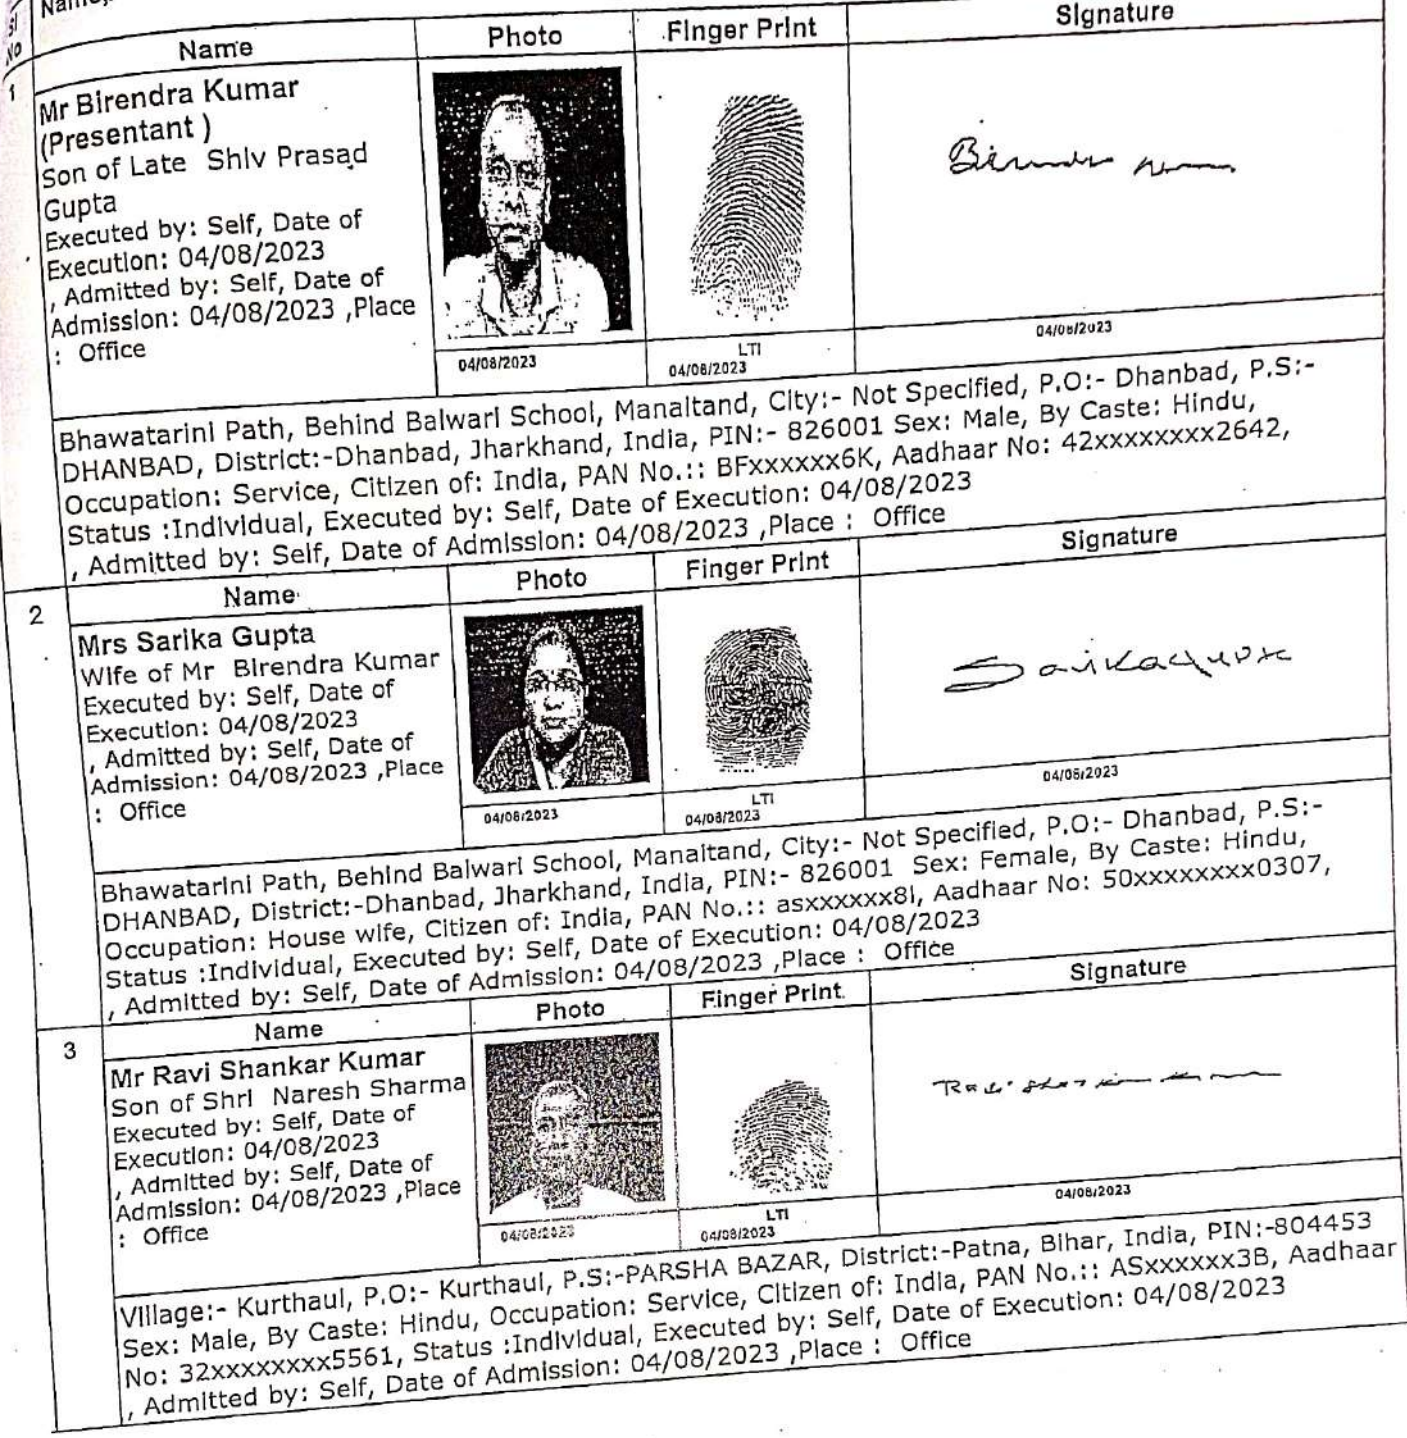 Sl
No
Name Photo Finger Print Signature
1
Mr Birendra Kumar
(Presentant )
Son of Late Shiv Prasad
Gupta
Executed by: Self, Date of
Execution: 04/08/2023
, Admitted by: Self, Date of
Admission: 04/08/2023 ,Place
: Office
Birendra Kumar
04/08/2023 LTI
04/08/2023 04/08/2023
Bhawatarini Path, Behind Balwari School, Manaitand, City:- Not Specified, P.O:- Dhanbad, P.S:-
DHANBAD, District:-Dhanbad, Jharkhand, India, PIN:- 826001 Sex: Male, By Caste: Hindu,
Occupation: Service, Citizen of: India, PAN No.:: BFxxxxxx6K, Aadhaar No: 42xxxxxxxx2642,
Status :Individual, Executed by: Self, Date of Execution: 04/08/2023
, Admitted by: Self, Date of Admission: 04/08/2023 ,Place : Office
2
Name Photo Finger Print Signature
Mrs Sarika Gupta
Wife of Mr Birendra Kumar
Executed by: Self, Date of
Execution: 04/08/2023
, Admitted by: Self, Date of
Admission: 04/08/2023 ,Place
: Office
Sarika Gupta
04/08/2023 LTI
04/08/2023 04/08/2023
Bhawatarini Path, Behind Balwari School, Manaitand, City:- Not Specified, P.O:- Dhanbad, P.S:-
DHANBAD, District:-Dhanbad, Jharkhand, India, PIN:- 826001 Sex: Female, By Caste: Hindu,
Occupation: House wife, Citizen of: India, PAN No.:: asxxxxxx8l, Aadhaar No: 50xxxxxxxx0307,
Status :Individual, Executed by: Self, Date of Execution: 04/08/2023
, Admitted by: Self, Date of Admission: 04/08/2023 ,Place : Office
3
Name Photo Finger Print Signature
Mr Ravi Shankar Kumar
Son of Shri Naresh Sharma
Executed by: Self, Date of
Execution: 04/08/2023
, Admitted by: Self, Date of
Admission: 04/08/2023 ,Place
: Office
Ravi Shankar Kumar
04/08/2023 LTI
04/08/2023 04/08/2023
Village:- Kurthaul, P.O:- Kurthaul, P.S:-PARSHA BAZAR, District:-Patna, Bihar, India, PIN:-804453
Sex: Male, By Caste: Hindu, Occupation: Service, Citizen of: India, PAN No.:: ASxxxxxx3B, Aadhaar
No: 32xxxxxxxx5561, Status :Individual, Executed by: Self, Date of Execution: 04/08/2023
, Admitted by: Self, Date of Admission: 04/08/2023 ,Place : Office